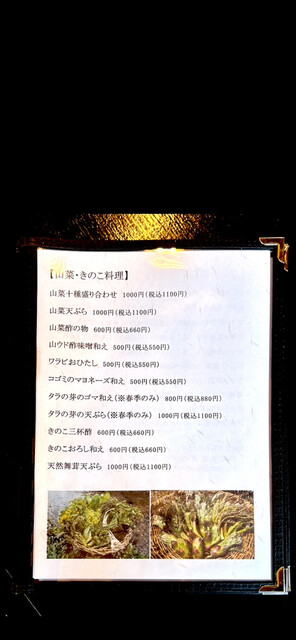 【山菜・きのこ料理】
山菜十種盛り合わせ 1000円(税込1100円)
山菜天ぷら 1000円(税込1100円)
山菜酢の物 600円(税込660円)
山ウド酢味噌和え 500円(税込550円)
ワラビおひたし 500円(税込550円)
コゴミのマヨネーズ和え 500円(税込550円)
タラの芽のゴマ和え(※春季のみ) 800円(税込880円)
タラの芽の天ぷら(※春季のみ) 1000円(税込1100円)
きのこ三杯酢 600円(税込660円)
きのこおろし和え 600円(税込660円)
天然舞茸天ぷら 1000円(税込1100円)